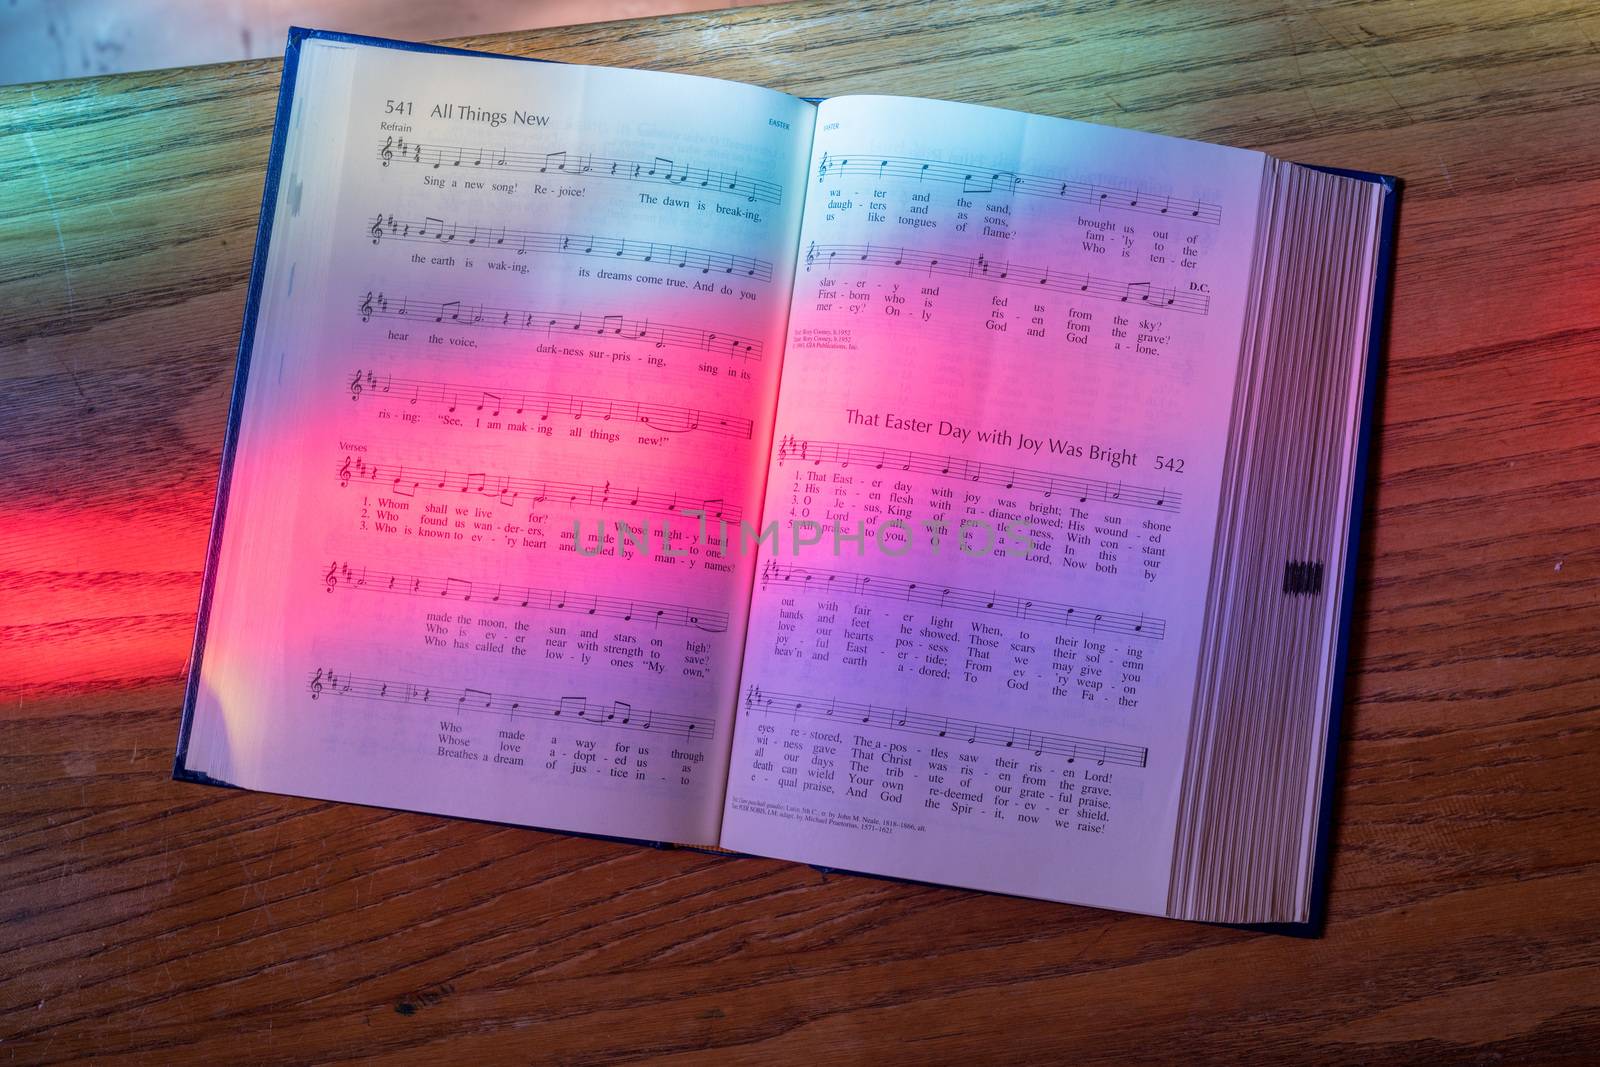 541 All Things New
EASTER
Refrain
Sing a new song! Re - joice! The dawn is break-ing,
the earth is wak-ing, its dreams come true. And do you
hear the voice, dark-ness sur-pris - ing, sing in its
ris - ing: “See, I am mak - ing all things new!”
Verses
1. Whom shall we live for? Whose might-y hand
2. Who found us wan-der-ers, and made us in - to one,
3. Who is known to ev - 'ry heart and called by man - y names?
made the moon, the sun and stars on high?
Who is ev - er near with strength to save?
Who has called the low - ly ones “My own,”
Who made a way for us through
Whose love a - dopt - ed us as
Breathes a dream of jus - tice in - to
EASTER
wa - ter and the sand, brought us out of
daugh - ters and as sons, fam - 'ly to the
us like tongues of flame? Who is ten - der
D.C.
slav - er - y and fed us from the sky?
First - born who is ris - en from the grave?
mer - cy? On - ly God and God a - lone.
Text: Rory Cooney, b.1952
Tune: Rory Cooney, b.1952
© 1985, GIA Publications, Inc.
That Easter Day with Joy Was Bright 542
1. That East - er day with joy was bright; The sun shone
2. His ris - en flesh with ra - diance glowed; His wound - ed
3. O Je - sus, King of gen - tle - ness, With con - stant
4. O Lord of all, with us a - bide In this our
5. All praise to you, O ris - en Lord, Now both by
out with fair - er light When, to their long - ing
hands and feet he showed. Those scars their sol - emn
love our hearts pos - sess That we may give you
joy - ful East - er - tide; From ev - 'ry weap - on
heav'n and earth a - dored; To God the Fa - ther
eyes re - stored, The a - pos - tles saw their ris - en Lord!
wit - ness gave That Christ was ris - en from the grave.
all our days The trib - ute of our grate - ful praise.
death can wield Your own re-deemed for - ev - er shield.
e - qual praise, And God the Spir - it, now we raise!
Text: Claro paschali gaudio; Latin, 5th C.; tr. by John M. Neale, 1818–1866, alt.
Tune: PUER NOBIS, LM; adapt. by Michael Praetorius, 1571–1621
UNLIMPHOTOS